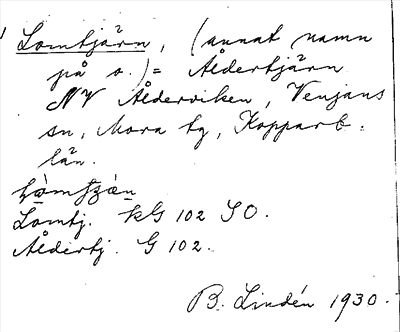 Lomtjärn, (annat namn
på s.) = Åldertjärn
NV Ålderviken, Venjans
sn, Mora tg, Kopparb.
län.
Lomtj. kG 102 SO.
Åldertj. G 102.
B. Lindén 1930.